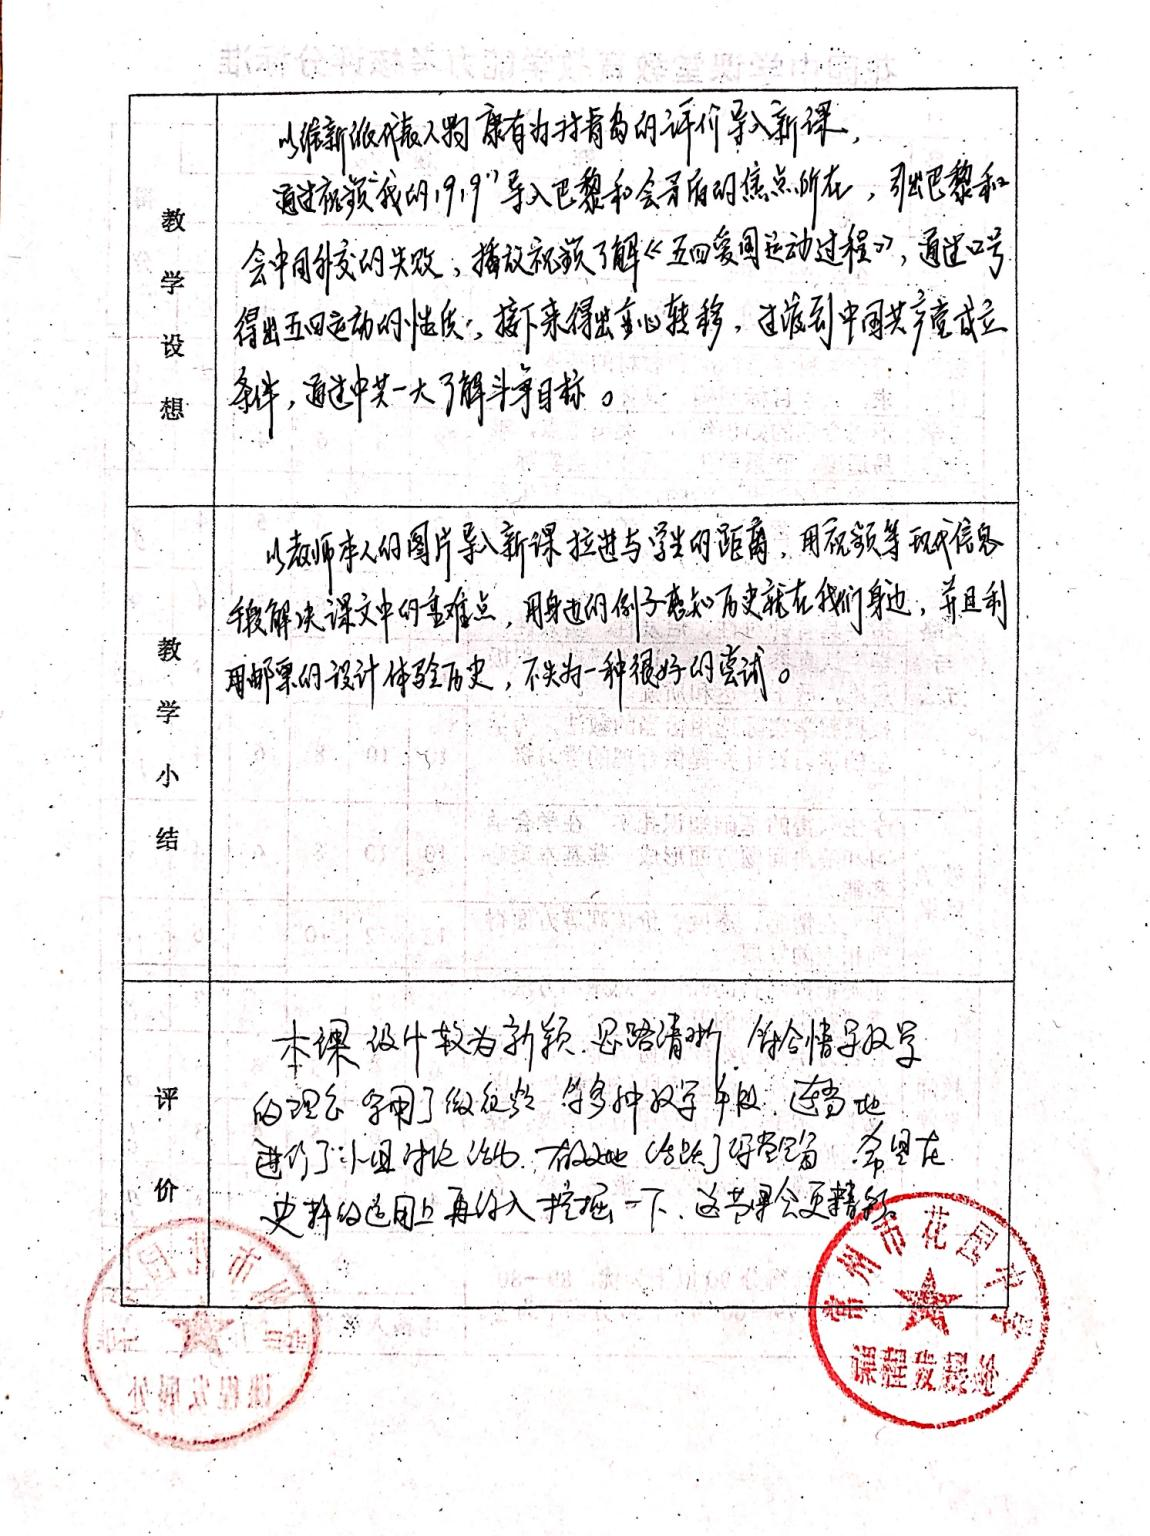 教学设想
以维新派代表人物康有为对青岛的评价导入新课，
通过视频“我的1919”导入巴黎和会矛盾的焦点所在，引出巴黎和
会中国外交的失败，播放视频了解《五四爱国运动过程》，通过口号
得出五四运动的性质，接下来得出重心转移，过渡到中国共产党成立
条件，通过中共一大了解斗争目标。
教学小结
以教师本人的图片导入新课拉进与学生的距离，用视频等现代信息
手段解决课文中的重难点，用身边的例子感知历史就在我们身边，并且利
用邮票的设计体验历史，不失为一种很好的尝试。
评价
本课设计较为新颖、思路清晰，符合情景教学
的理念，运用了微视频等多种教学手段，适当地
进行了小组讨论活动，有效地活跃了课堂，希望在
史料的运用上再深入挖掘一下，这节课会更精彩。
常州市花园中学
课程发展处